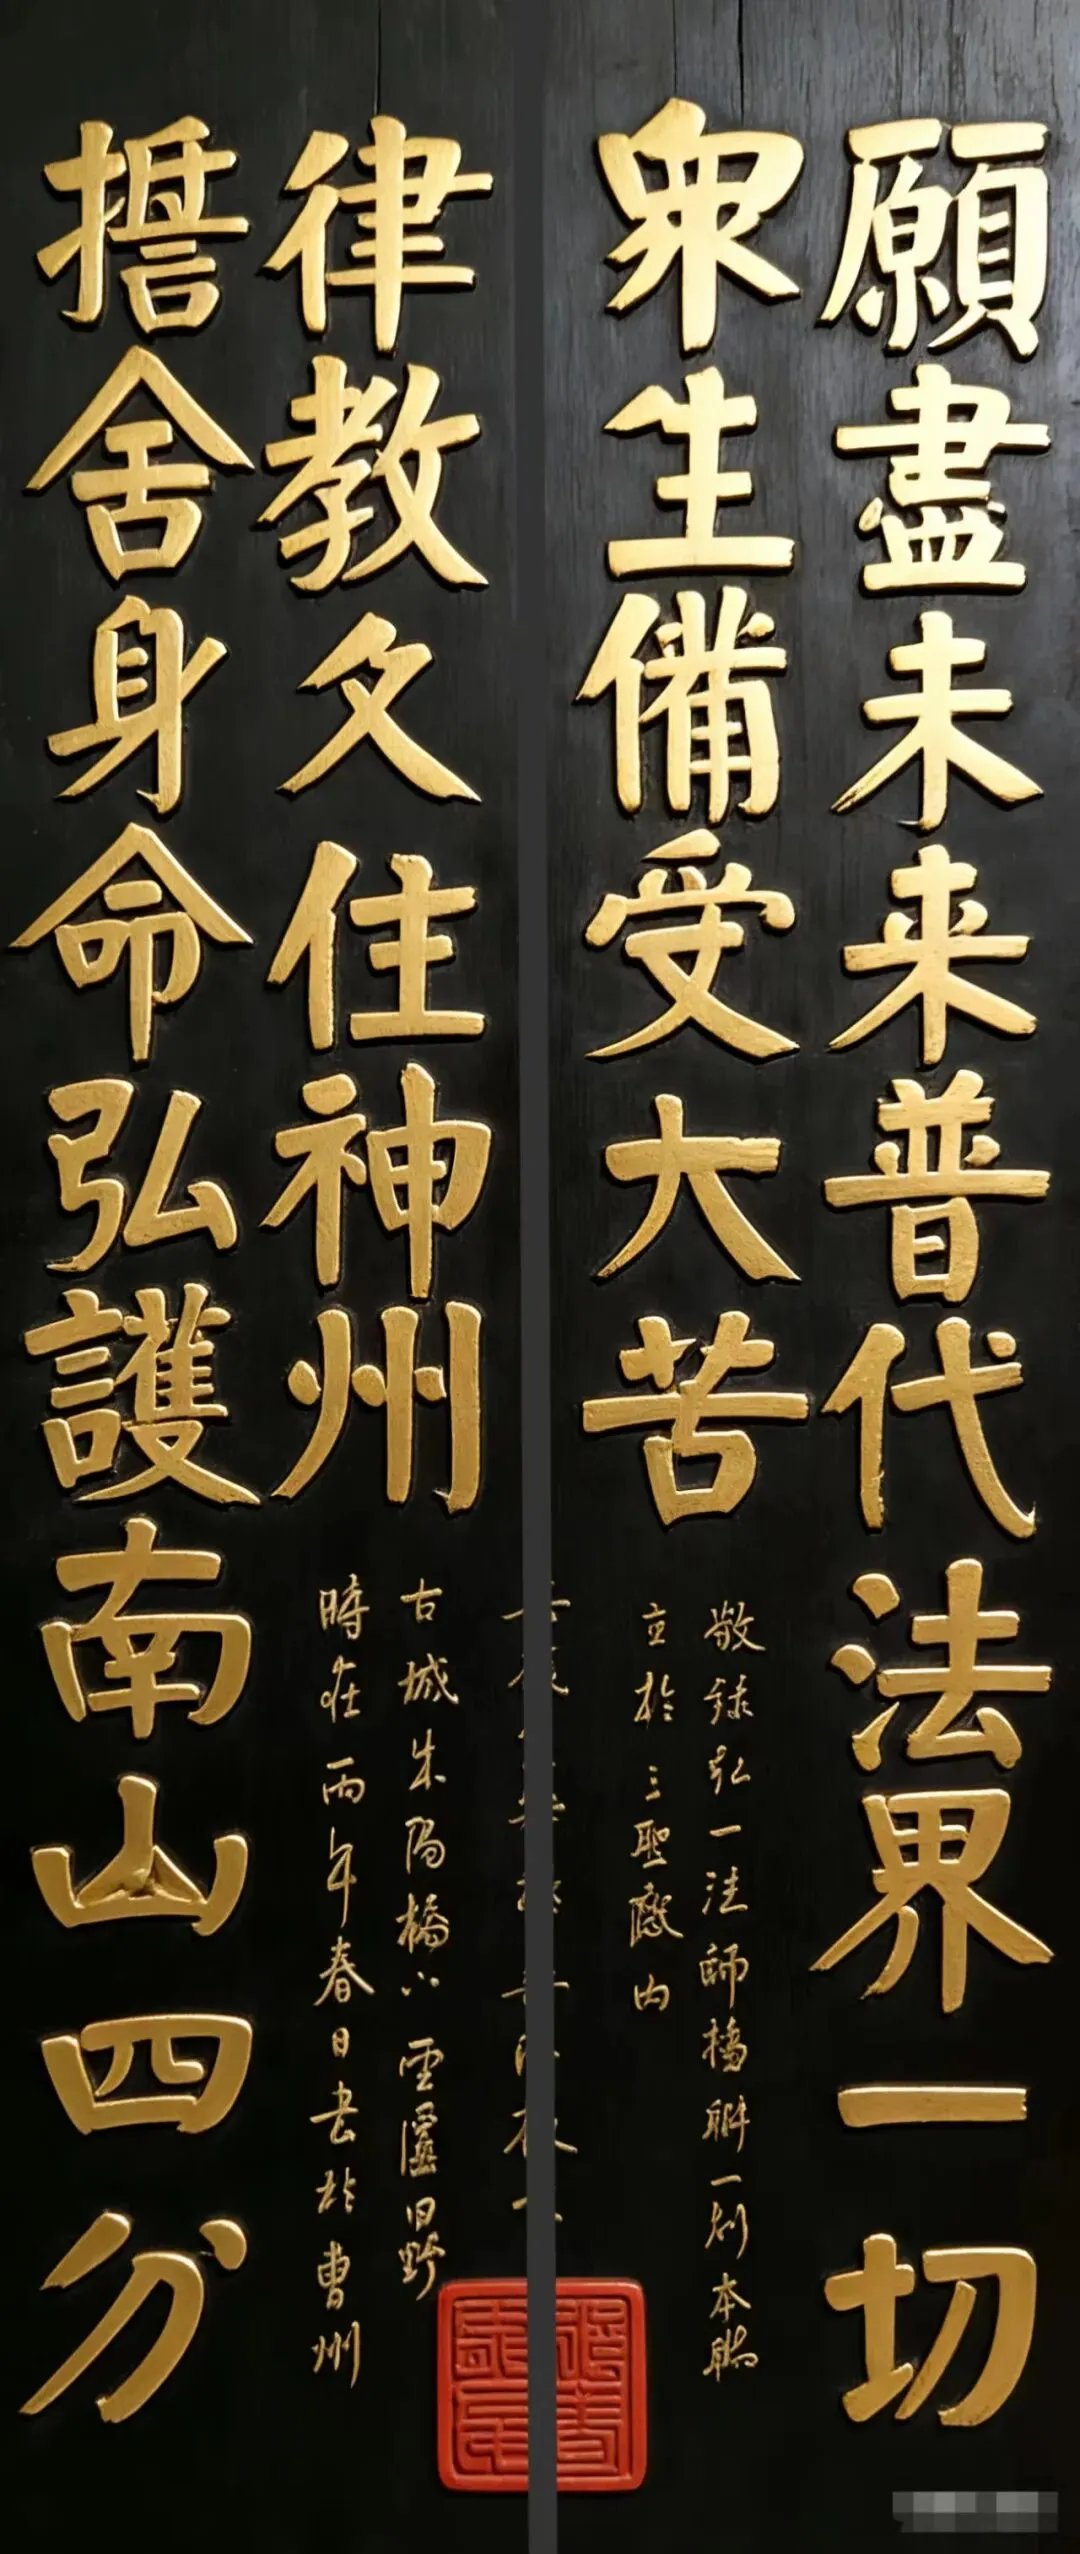 願盡未來普代法界一切
眾生備受大苦
敬錄弘一法師聯一则本聯
主於三聖殿内
誓舍身命弘護南山四分
律教久住神州
古城朱陽橋
時在丙年春日書於曹州